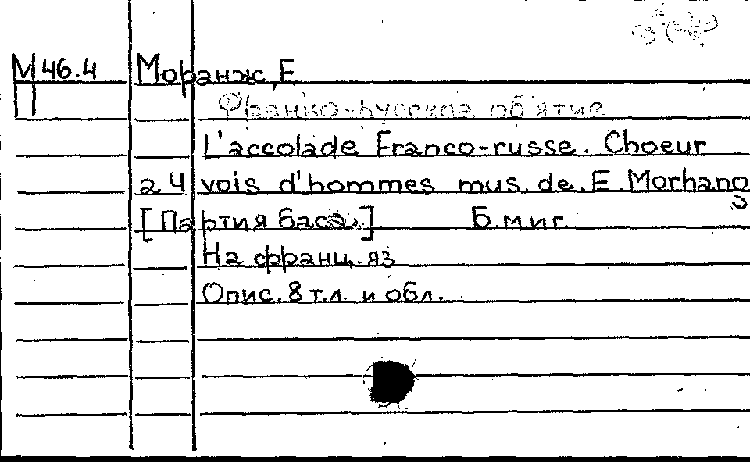 М 46.4 Моранж, Е
П
Франко-русское об'ятие
L'accolade Franco-russe. Choeur
a 4 vois d'hommes mus. de. E. Morhang
[Партия баса.] Б. м. и г.
На франц. яз
Опис. 8 т.л. и обл.